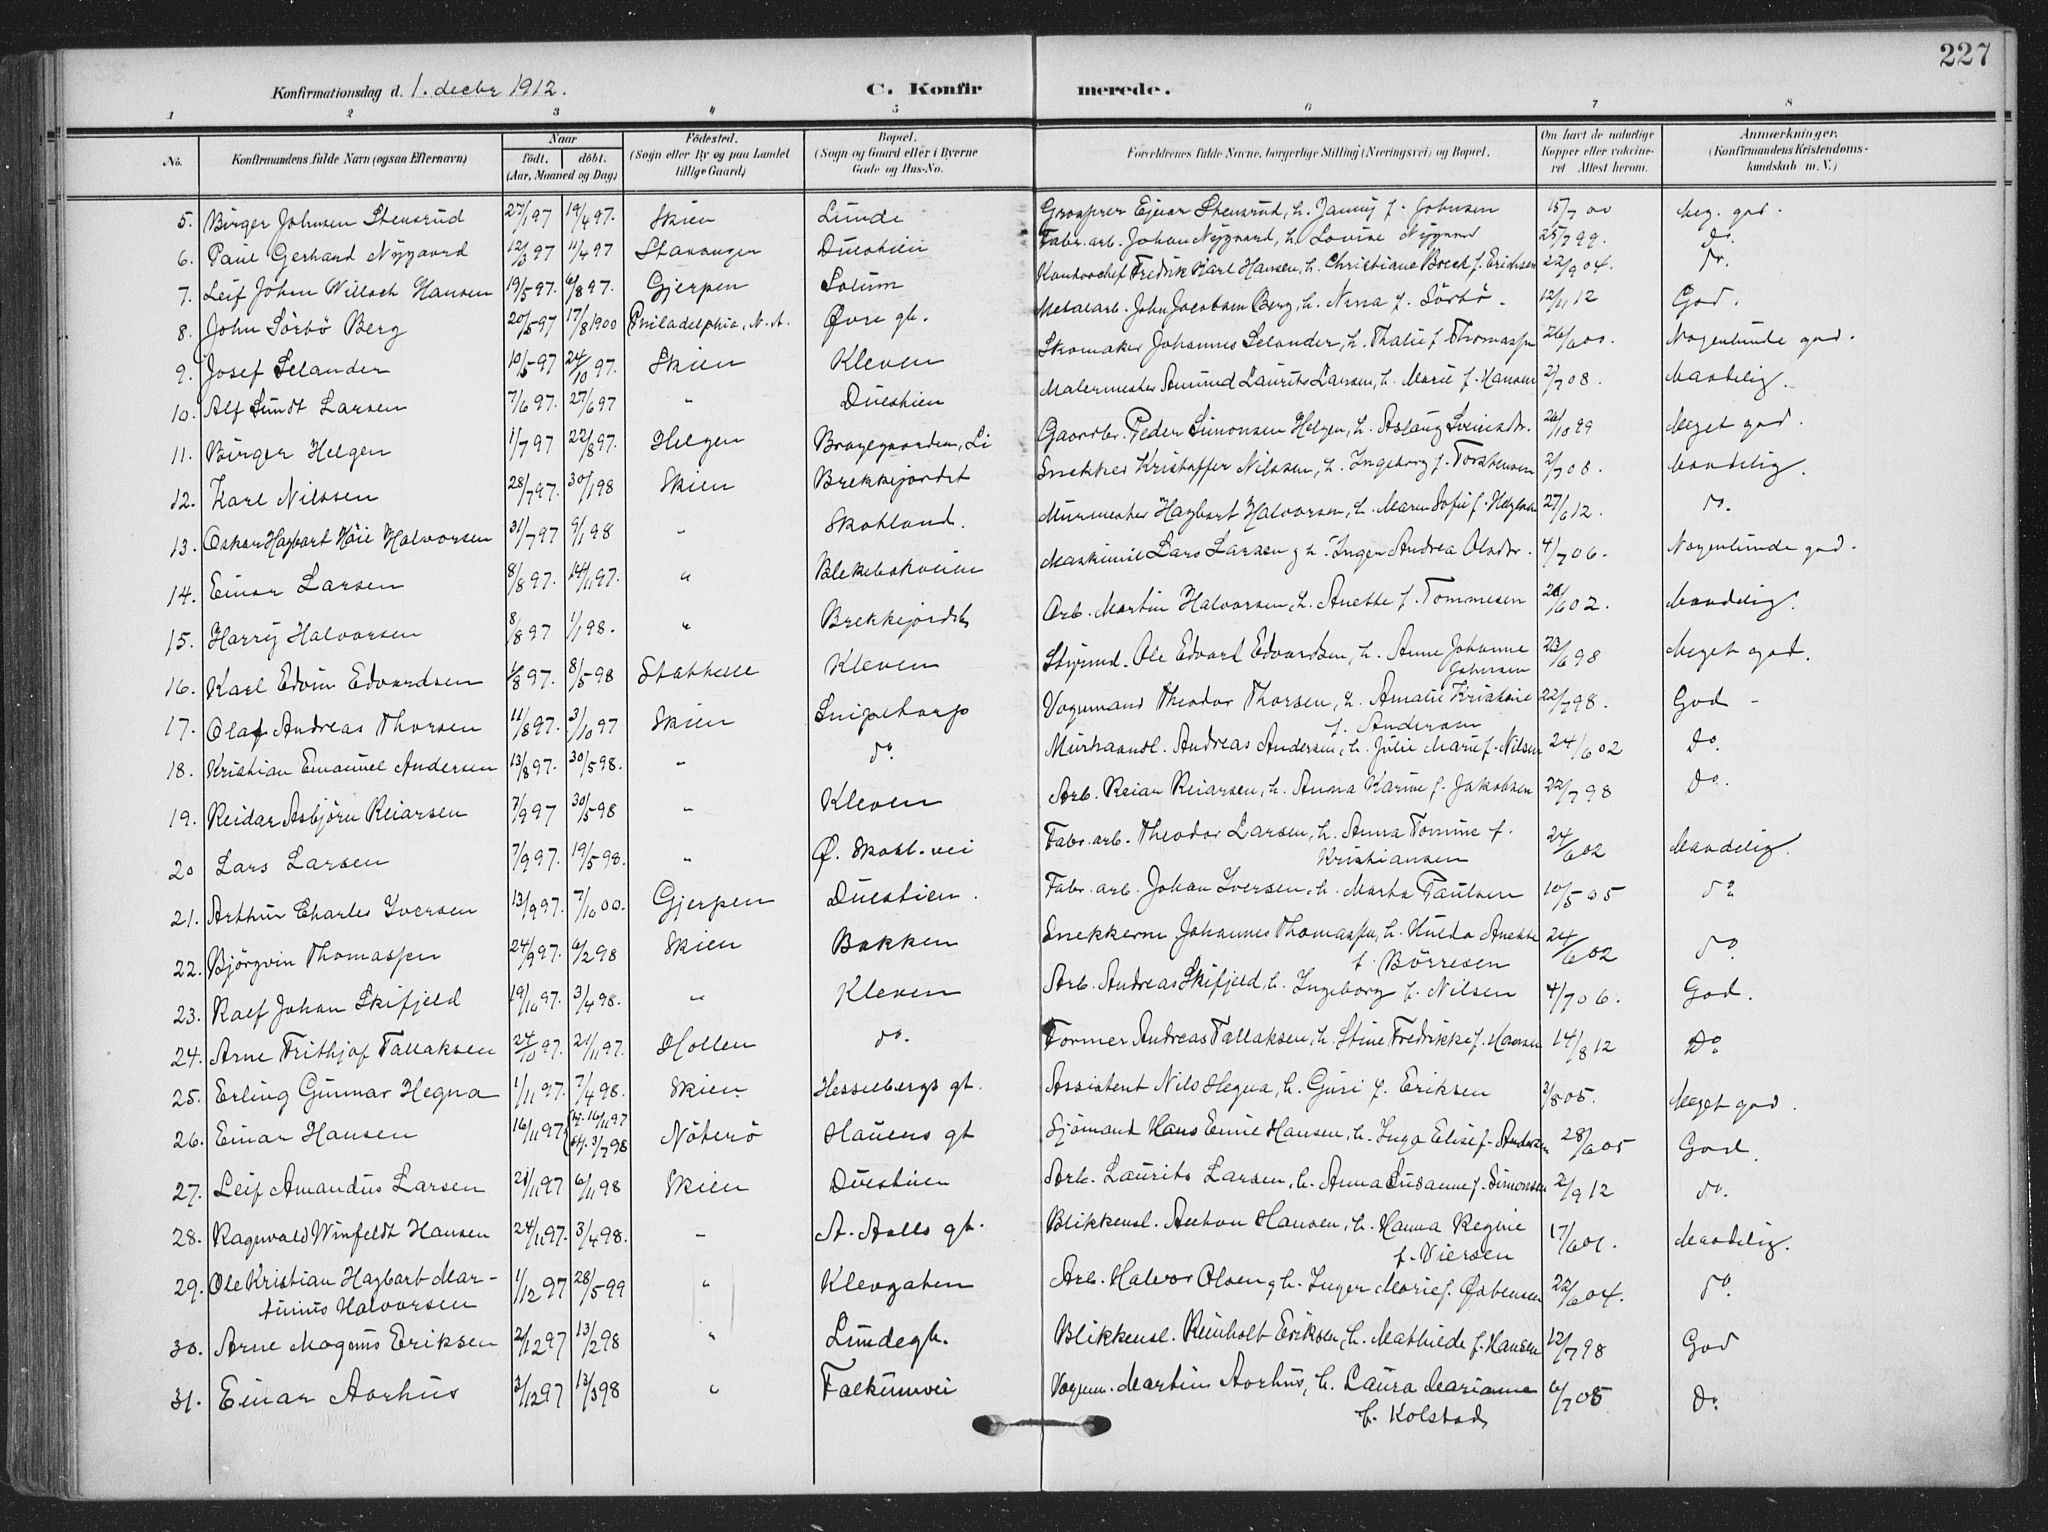 227
Konfirmationsdag d. 1. decbr 1912.
C. Konfirmerede.
1 2 3 4 5 6 7 8
No. Konfirmandens fulde Navn (ogsaa Efternavn) Naar födt. döbt. (Aar, Maaned og Dag) Födested. (Sogn eller By og paa Landet tillige Gaard) Bopæl. (Sogn og Gaard eller i Byerne Gade og Hus-No. Forældrenes fulde Navne, borgerlige Stilling (Næringsvei) og Bopæl. Om havt de naturlige Kopper eller vakcineret. Attest herom. Anmærkninger. (Konfirmandens Kristendomskundskab m. V.)
5. Birger Johnsen Stensrud 27/1 97 19/4 97. Skien Lunde Grosserer Ejnar Stensrud, h. Jenny f. Johnsen 15/7 00 Meg. god.
6. Paul Gerhard Nygaard 12/3 97 11/4 97 Stavanger Duestien Fabr. arb. Johan Nygaard, h. Lovise Nygaard 25/7 99. Do.
7. Leif John Willoch Hansen 19/5 97. 6/8 97. Gjerpen Solum Kontorchef Fredrik Karl Hansen, h. Christiane Boeck f. Erichsen 22/9 04. Do.
8. John Sörbö Berg 20/5 97 17/8 1900 Philadelphia, N. A. Övre gt. Metalarb. John Jacobsen Berg, h. Nina f. Sörbö. 12/11 12 God.
9. Josef Selander 10/5 97 24/10 97. Skien Kleven Skomaker Johannes Selander, h. Thalie f. Thomassen 26/6 00. Nogenlunde god.
10. Alf Lundt Larsen 7/6 97. 27/6 97 " Duestien Malermester Amund Laurits Larsen, h. Marie f. Hansen 2/7 08. Maadelig.
11. Birger Helgen 1/7 97 22/8 97. Helgen Bragegaarden, Li Gaardbr. Peder Simonsen Helgen, h. Aslaug Sveinsdr. 26/10 99 Meget god.
12. Karl Nilssen 28/7 97. 30/1 98 Skien Brekkejordet Snekker Kristoffer Nilssen, h. Ingeborg f. Torstensen 2/7 08. Maadelig.
13. Oskar Hagbart Höie Halvorsen 31/7 97 9/1 98 " Skotland. Murmester Hagbart Halvorsen, h. Maren Sofie f. 27/6 12. Do.
14. Einar Larsen 8/8 97. 14/11 97. " Blekebakveien Maskinist Lars Larsen, h. Inger Andrea Olsdr. 4/7 06. Nogenlunde god.
15. Harry Halvorsen 8/8 97 1/1 98. " Brekkejordet Arb. Martin Halvorsen, h. Anette f. Tommesen 26/6 02. Maadelig.
16. Karl Edvin Edvardsen 1/8 97. 8/5 98 Stathelle Kleven Styrmd. Ole Edvart Edvardsen, h. Anne Johanne Johnsen 23/6 98 Meget god.
17. Olaf Andreas Thorsen 11/8 97. 3/10 97 Skien Snipetorp Vognmand Theodor Thorsen, h. Amalie Kristine f. Andersen 22/7 98. God -
18. Kristian Emanuel Andersen 13/8 97. 30/5 98. " do. Murhaandl. Andreas Andersen, h. Julie Marie f. Nilsen 24/6 02 Do.
19. Reidar Asbjörn Reiarsen 7/9 97 30/5 98 " Kleven Arb. Reiar Reiarsen, h. Anna Karine f. Jakobsen 22/7 98 Do.
20 Lars Larsen 7/9 97. 19/5 98. " Ö. Skotl. vei Fabr. arb. Theodor Larsen, h. Anna Tomine f. Kristiansen 24/6 02 Maadelig.
21. Arthur Charles Iversen 13/9 97. 7/10 00. Gjerpen Duestien. Fabr. arb. Johan Iversen, h. Marta Paulsen 10/5 05 Do
22. Björgvin Thomassen 24/9 97. 6/2 98 Skien Bakken Snekkerm. Johannes Thomassen, h. Hulda Anette f. Börresen 24/6 02 Do.
23. Ralf Johan Skifjeld 19/10 97. 3/4 98. " Kleven Arb. Andreas Skifjeld, h. Ingeborg f. Nilsen 4/7 06. God.
24. Arne Frithjof Tallaksen 24/10 97. 21/11 97. Hollen do. Former Andreas Tallaksen, h. Stine Fredrikke f. Hansen 14/8 12 Do
25. Erling Gunnar Hegna 1/11 97. 7/4 98. Skien. Hesselbergs gt. Assistent Nils Hegna, h. Guri f. Eriksen 3/8 05. Meget god.
26. Einar Hansen 16/11 97 (hj. 16/11 97 st. 3/7 98 Nöterö Hauens gt Sjömand Hans Emil Hansen, h. Inga Elise f. Andersen 28/6 05 God.
27. Leif Amandus Larsen 21/11 97 6/11 98 Skien Duestien Arb. Laurits Larsen, h. Anna Susanne f. Simonsen 2/9 12 do.
28. Ragnvald Winfeldt Hansen 24/11 97. 3/4 98. " A. Aalls gt. Blikkensl. Anton Hansen, h. Hanna Regine f. Viersen 17/6 01. Maadelig.
29. Ole Kristian Hagbart Martinius Halvorsen 1/12 97 28/5 99 " Klevgaten Arb. Halvor Olsen, h. Inger Marie f. Östensen 22/6 04. do.
30. Arne Magnus Eriksen 2/12 97 13/2 98 " Lundegt. Blikkensl. Reinholt Eriksen, h. Mathilde f. Hansen 12/7 98 God
31. Einar Aarhus 3/12 97 13/3 98 " Falkumvei Vognm. Martin Aarhus, h. Laura Marianne f. Kolstad 6/7 05 Do